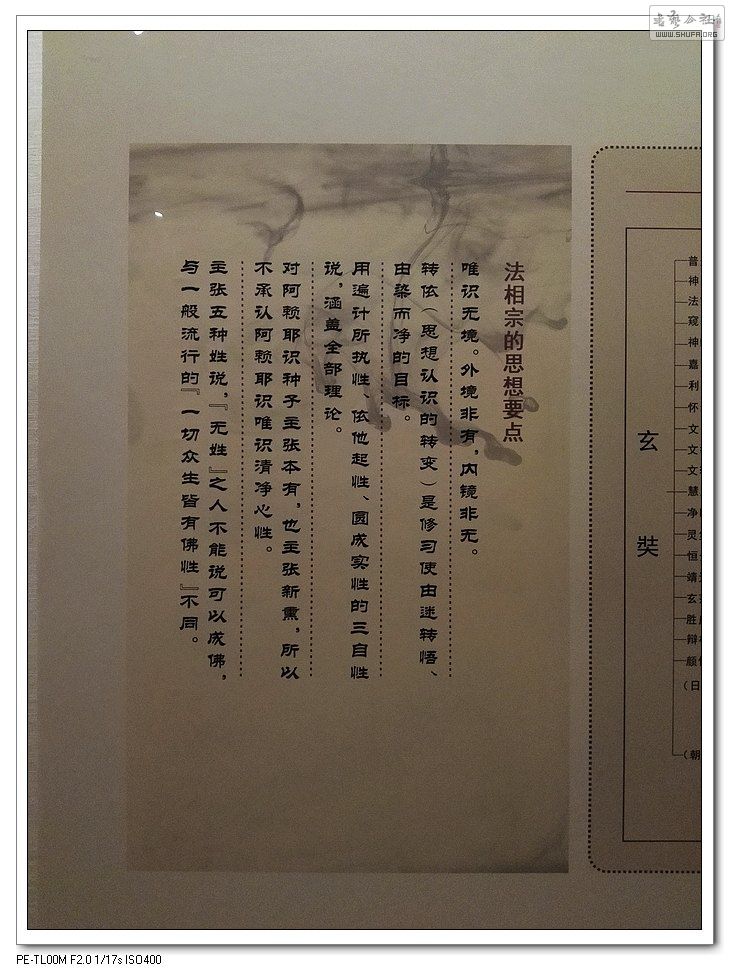 法相宗的思想要点
唯识无境。外境非有，内镜非无。
转依（思想认识的转变）是修习使由迷转悟、
由染而净的目标。
用遍计所执性、依他起性、圆成实性的三自性
说，涵盖全部理论。
对阿赖耶识种子主张本有，也主张新熏，所以
不承认阿赖耶识唯识清净心性。
主张五种姓说，『无姓』之人不能说可以成佛，
与一般流行的『一切众生皆有佛性』不同。
玄奘
普
神
法
窥
神
嘉
利
怀
文
文
文
慧
净
灵
恒
靖
玄
胜
辩
颜
（日
（朝
书艺公社
WWW.SHUFA.ORG
PE-TL00M F2.0 1/17s ISO400